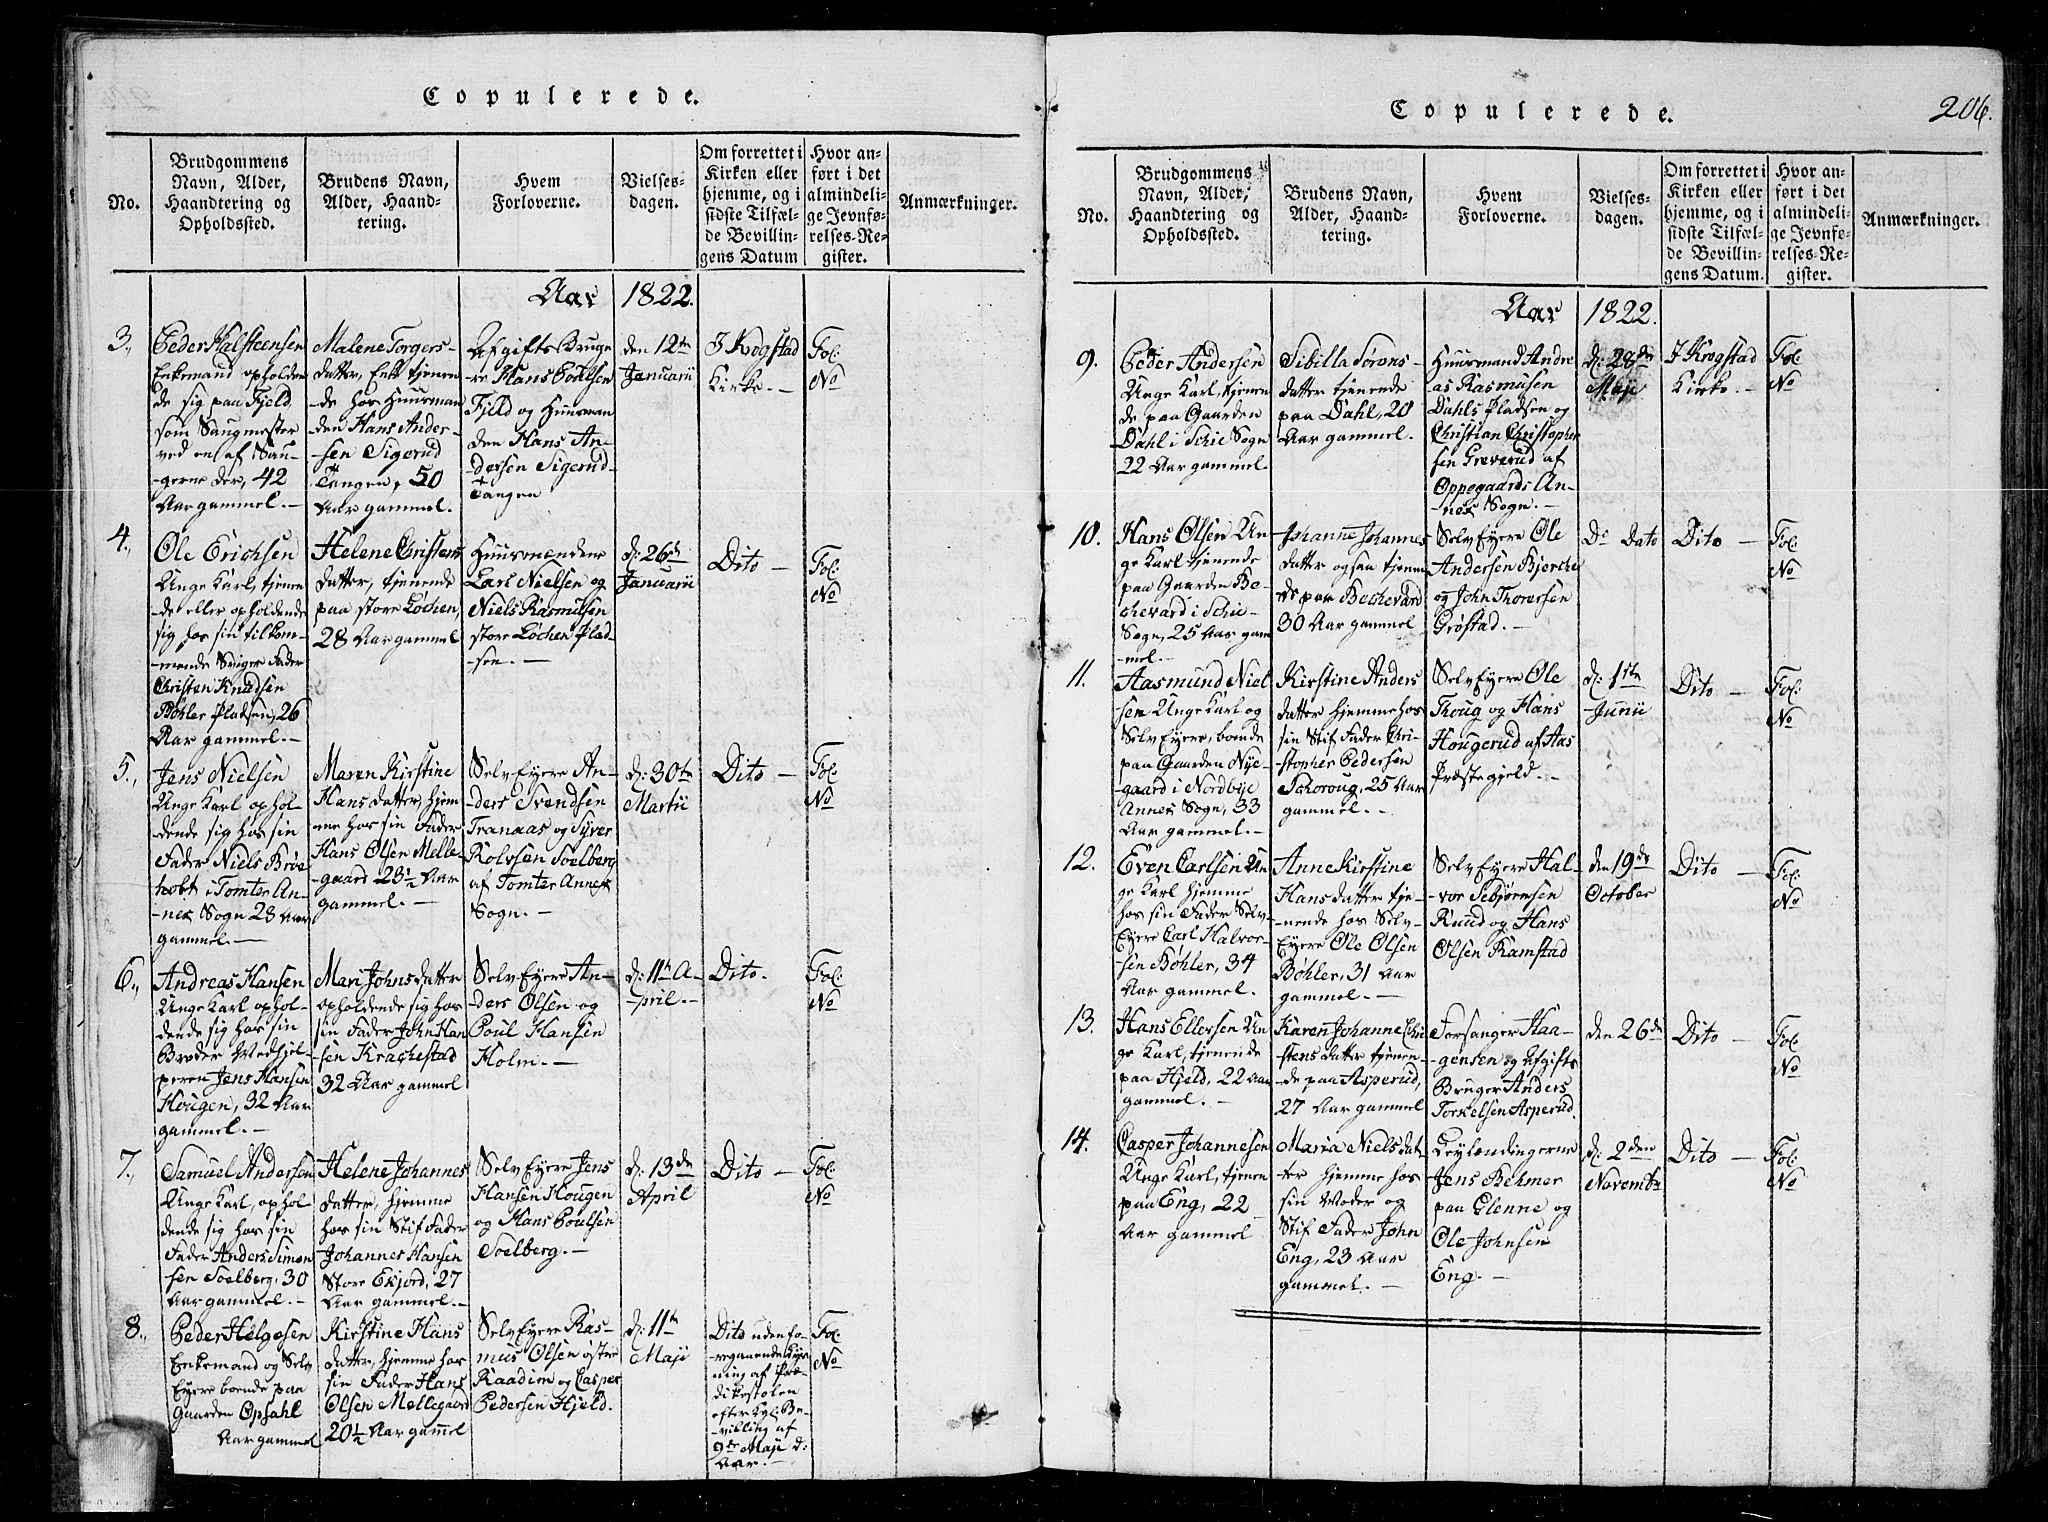 Copulerede.
No.
Brudgommens
Navn, Alder,
Haandtering og
Opholdssted.
Brudens Navn,
Alder, Haand-
tering.
Hvem
Forloverne.
Vielses-
dagen.
Om forrettet i
Kirken eller
hjemme, og i
sidste Tilfæl-
de Bevillin-
gens Datum
Hvor an-
ført i det
almindeli-
ge Jevnfø-
relses-Re-
gister.
Anmærkninger.
Aar 1822.
3.,
Peder Halsteensen
Enkemand opholden
de sig paa Fjeld
som Saugmester
ved en af Sau-
-gerne der, 42
Aar gammel. -
Malene Torgers-
datter, Enke tjenen
-de hos Huusman
den Hans Ander-
sen Sigerud
Tangen, 50
Aar gammel.
Afgifts Bruge
re Hans Poulsen
Fjeld og Huusman
den Hans An-
dersen Sigerud-
Tangen
den 12te
Januarii
I Krogstad
Kirke. -
Fol:
No
4.,
Ole Erichsen
Unge Karl, tjenen
-de eller opholdende
sig hos sin tilkom-
-mende Sviger Fader
Christen Knudsen
Bøhler Pladsen, 26
Aar gammel. -
Helene Christens
datter, tjenende
paa store Løchen,
28 Aar gammel
Huusmændene
Lars Nielsen og
Niels Rasmusen
store Løchen Plad-
-sen. -
d: 26de
Januarii
Dito -
Fol:
No
5.,
Jens Nielsen
Unge Karl ophol-
dende sig hos sin
Fader Niels Brøe
tvedt i Tomter An-
-nex Sogn 28 Aar
gammel. -
Maren Kirstine
Hans datter, hjem
me hos sin Fader
Hans Olsen Melle-
gaard 23½ Aar
gammel. -
Selv Eyere An-
ders Svendsen
Tranaas og Syver
Rolvsen Soelberg
af Tomter Annex
Sogn. -
d: 30te
Martii
Dito -
Fol:
No
6.,
Andreas Hansen
Unge Karl ophol-
dende sig hos sin
Broder Medhjel-
peren Jens Hansen
Hougen, 32 Aar
gammel. -
Mari Johns datter
opholdende sig hos
sin Fader John Han
-sen Kragestad
32 Aar gammel
Selv Eyere An-
ders Olsen og
Poul Hansen
Holm. -
d: 11te A-
-pril. -
Dito.
Fol:
No
7.,
Samuel Andersen
Unge Karl, ophol
dende sig hos sin
Fader Anders Simon
sen Soelberg, 30
Aar gammel. -
Helene Johannes
datter, hjemme
hos sin Stif Fader
Johannes Hansen
Store Ekjord, 27
Aar gammel. -
Selv Eyere Jens
Hansen Hougen
og Hans Poulsen
Soelberg. -
d: 13de
April
Dito -
Fol:
No
8.,
Peder Helgesen
Enkemand og Selv
Eyere boende paa
Gaarden Opsahl
Aar gammel
Kirstine Hans
datter, hjemme hos
sin Fader Hans
Olsen Mellegaard
20½ Aar gammel
Selv Eyere Ras-
mus Olsen østre
Raadim og Casper
Pedersen Hjeld.
d: 11te
Maji
Dito uden fo-
-regaaende Lys
ning af Præ-
dikestolen
efter Kgl: Be-
-villing af
9de Maji d:
Aar. -
Fol:
No
Copulerede.
206.
No.
Brudgommens
Navn, Alder,
Haandtering og
Opholdssted.
Brudens Navn,
Alder, Haand-
tering.
Hvem
Forloverne.
Vielses-
dagen.
Om forrettet i
Kirken eller
hjemme, og i
sidste Tilfæl-
de Bevillin-
gens Datum.
Hvor an-
ført i det
almindeli-
ge Jevnfø-
relses-Re-
gister.
Anmærkninger.
Aar 1822.
9.
Peder Andersen
Unge Karl, tjenen
de paa Gaarden
Dahl i Schie Sogn
22 Aar gammel
Sibilla Sørens-
datter tjenende
paa Dahl, 20
Aar gammel.
Huusmand Andre
as Rasmusen
Dahls Pladsen og
Christian Christopher
sen Greverud af
Oppegaards An-
-nex Sogn. -
d: 28de
Maji
I Krogstad
Kirke. -
Fol:
No
10.
Hans Olsen Un-
ge Karl tjenende
paa Gaarden Be-
chevard i Schie-
Sogn, 25 Aar gam
-mel. -
Johanne Johannes
datter ogsaa tjenen
de paa Bechevard
30 Aar gammel
Selv Eyere Ole
Andersen Bjerche
og John Thoresen
Grøstad. -
Do Dato
Dito -
Fol:
No
11.
Aasmund Niel
sen Unge Karl og
Selv Eyere, boende
paa Gaarden Nye-
-gaard i Nordbye
Annex Sogn, 33
Aar gammel. -
Kirstine Anders
datter hjemme hos
sin Stif Fader Chri-
stopher Pedersen
Schoroug, 25 Aar
gammel. -
Selv Eyere Ole
Thoug og Hans
Hougerud af Aas
Præstegjeld. -
d: 1ste
Junii
Dito -
Fol:
No
12.
Even Carlsen Un
ge Karl hjemme
hos sin Fader Selv-
Eyere Carl Halvor-
-sen Bøhler, 34
Aar gammel.
Anne Kirstine
Hans datter tje-
-nende hos Selv-
Eyere Ole Olsen
Bøhler, 31 Aar
gammel. -
Selv Eyere Hal-
-vor Sebjørnsen
Ruud og Hans
Olsen Ramstad
den 19de
October
Dito -
Fol:
No
13.
Hans Ellersen Un
ge Karl, tjenende
paa Hjeld, 22 Aar
gammel. -
Karen Johanne Chri
stens datter tjenen-
-de paa Asperud,
27 Aar gammel
Forsanger Haa-
-gensen og Afgifts
Bruger Anders
Torkelsen Asperud.
den 26de
Dito -
Fol:
No
14.
Casper Johannesen
Unge Karl, tjenen
paa Eng, 22
Aar gammel
Maria Niels dat
ter hjemme hos
sin Moder og
Stif Fader John
Eng, 23 Aar
gammel. -
Leylændingerne
Jens Behmer
paa Glenne og
Ole Johnsen
Eng. -
d: 2den
Novembr
Dito -
Fol:
No